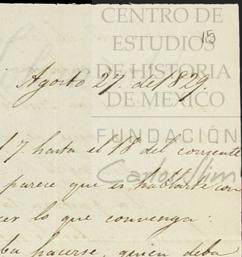 CENTRO DE
ESTUDIOS
DE HISTORIA
DE MEXICO
FUNDACIÓN
Carlos Slim
15
Agosto 27. del 829.
17 hasta el 18 del corriente
parece que es hablarte con
cer lo que convenga:
ba hacerse, quien deba